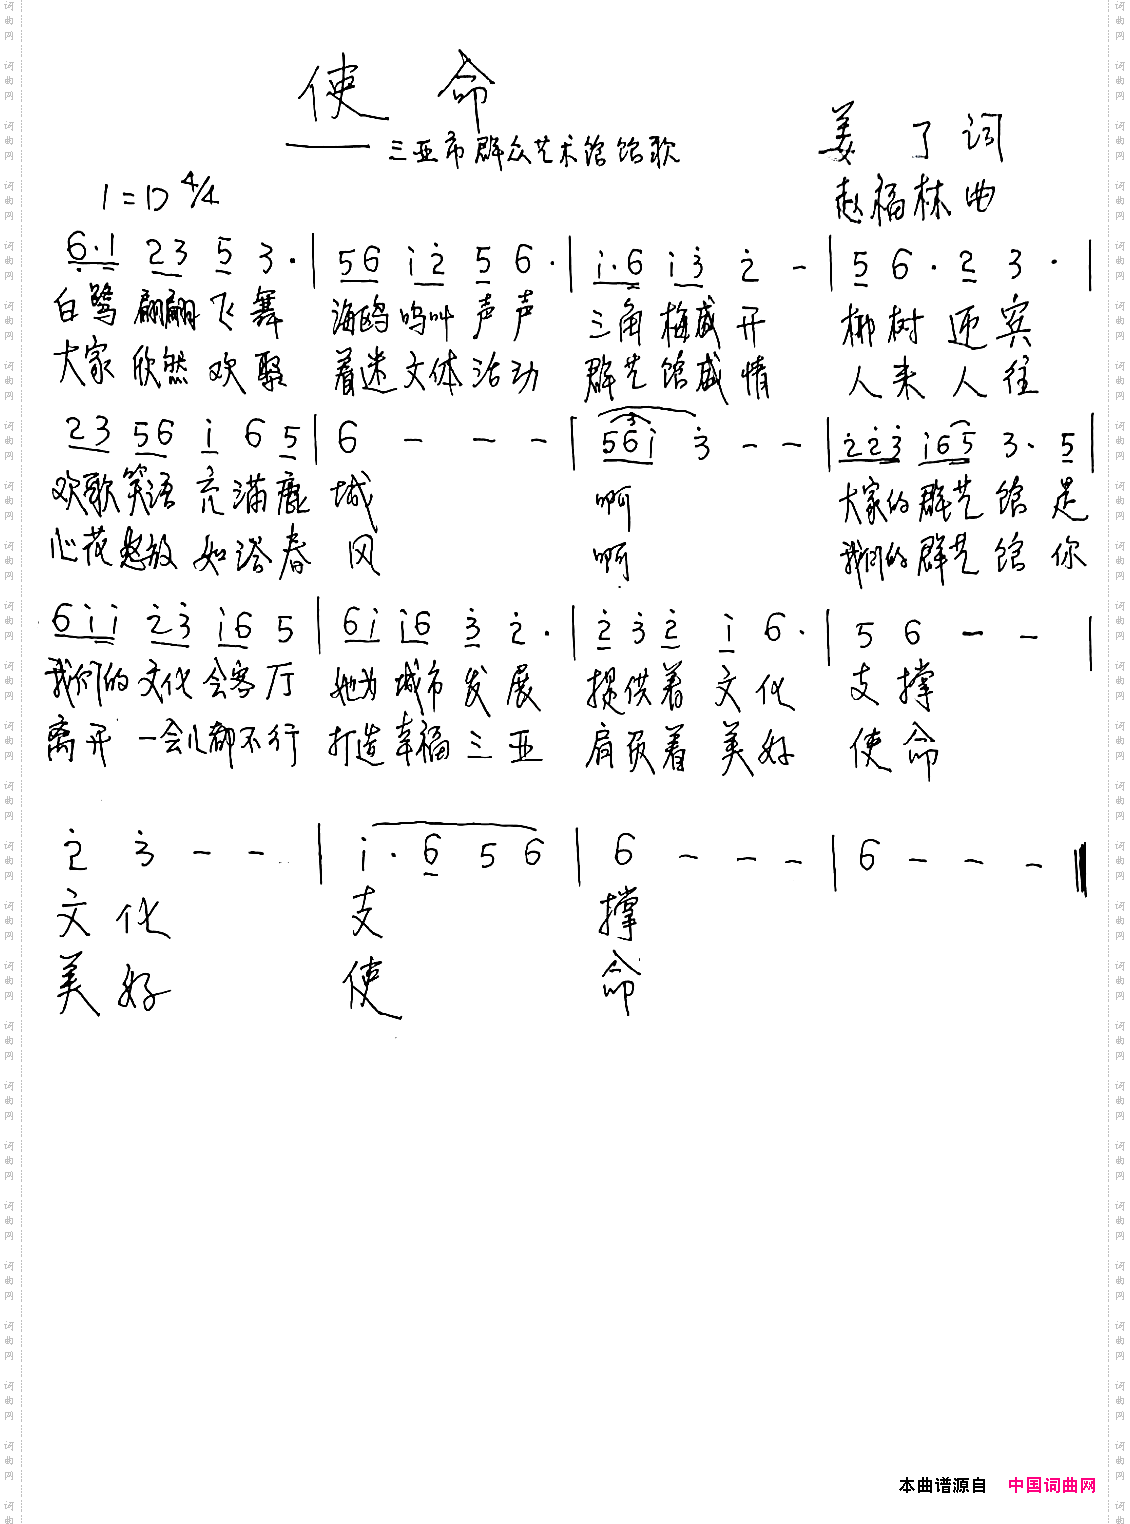 使 命
——三亚市群众艺术馆馆歌
姜 了 词
1=D 4/4
赵福林 曲
6·1 23 5 3· | 56 i2 5 6· | i·6 i3 2 - | 5 6· 2 3· |
白鹭 翩翩 飞 舞 海鸥 鸣叫 声 声 三角 梅盛 开 椰 树 迎 宾
大家 欣然 欢 聚 着迷 文体 活 动 群艺 馆盛 情 人 来 人 往
23 56 i 6 5 | 6 - - - | 56i 3 - - | 223 i65 3· 5 |
欢歌 笑语 充 满 鹿 城 啊 大家的 群艺 馆 是
心花 怒放 如 浴 春 风 啊 我们的 群艺 馆 你
6ii 23 i6 5 | 6i i6 3 2· | 2 3 2 i 6· | 5 6 - - |
我们的 文化 会客 厅 她为 城市 发 展 提供着 文 化 支 撑
离开 一会儿都不行 打造 幸福 三 亚 肩负着 美 好 使 命
2 3 - - | i· 6 5 6 | 6 - - - | 6 - - - ‖
文 化 支 撑
美 好 使 命
本曲谱源自 中国词曲网